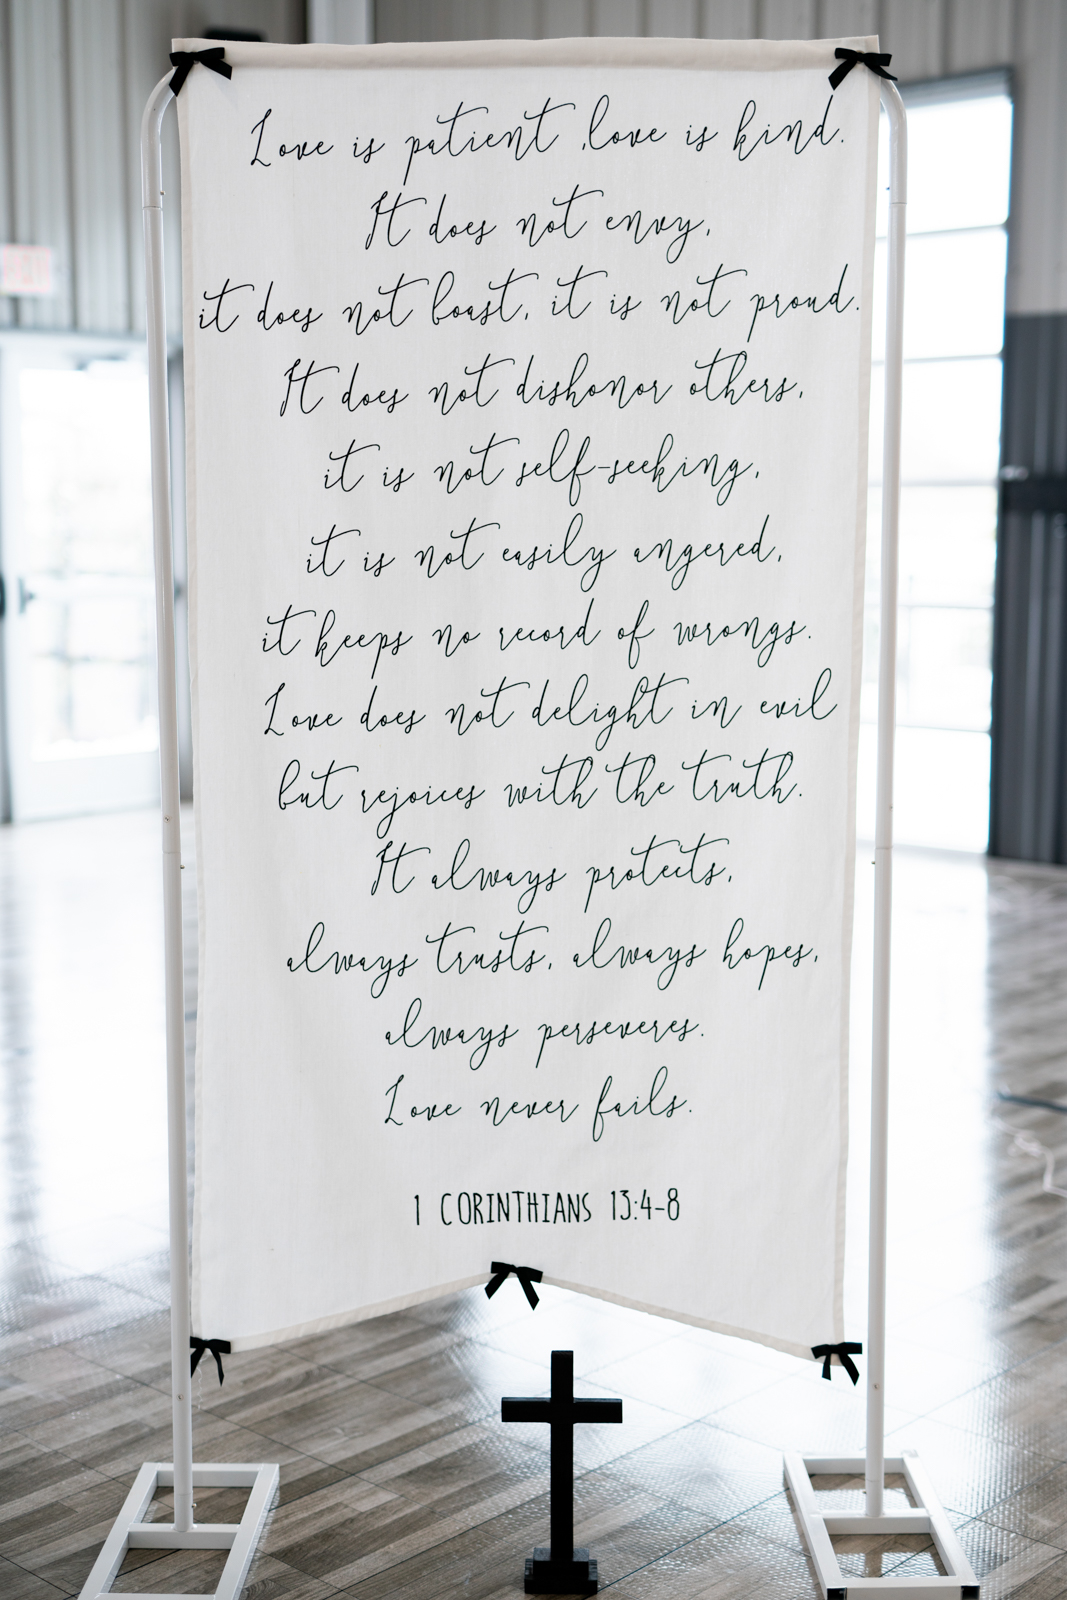 Love is patient ,love is kind.
It does not envy,
it does not boast, it is not proud.
It does not dishonor others,
it is not self-seeking,
it is not easily angered,
it keeps no record of wrongs.
Love does not delight in evil
but rejoices with the truth.
It always protects,
always trusts, always hopes,
always perseveres.
Love never fails.
1 CORINTHIANS 13:4-8
EXIT